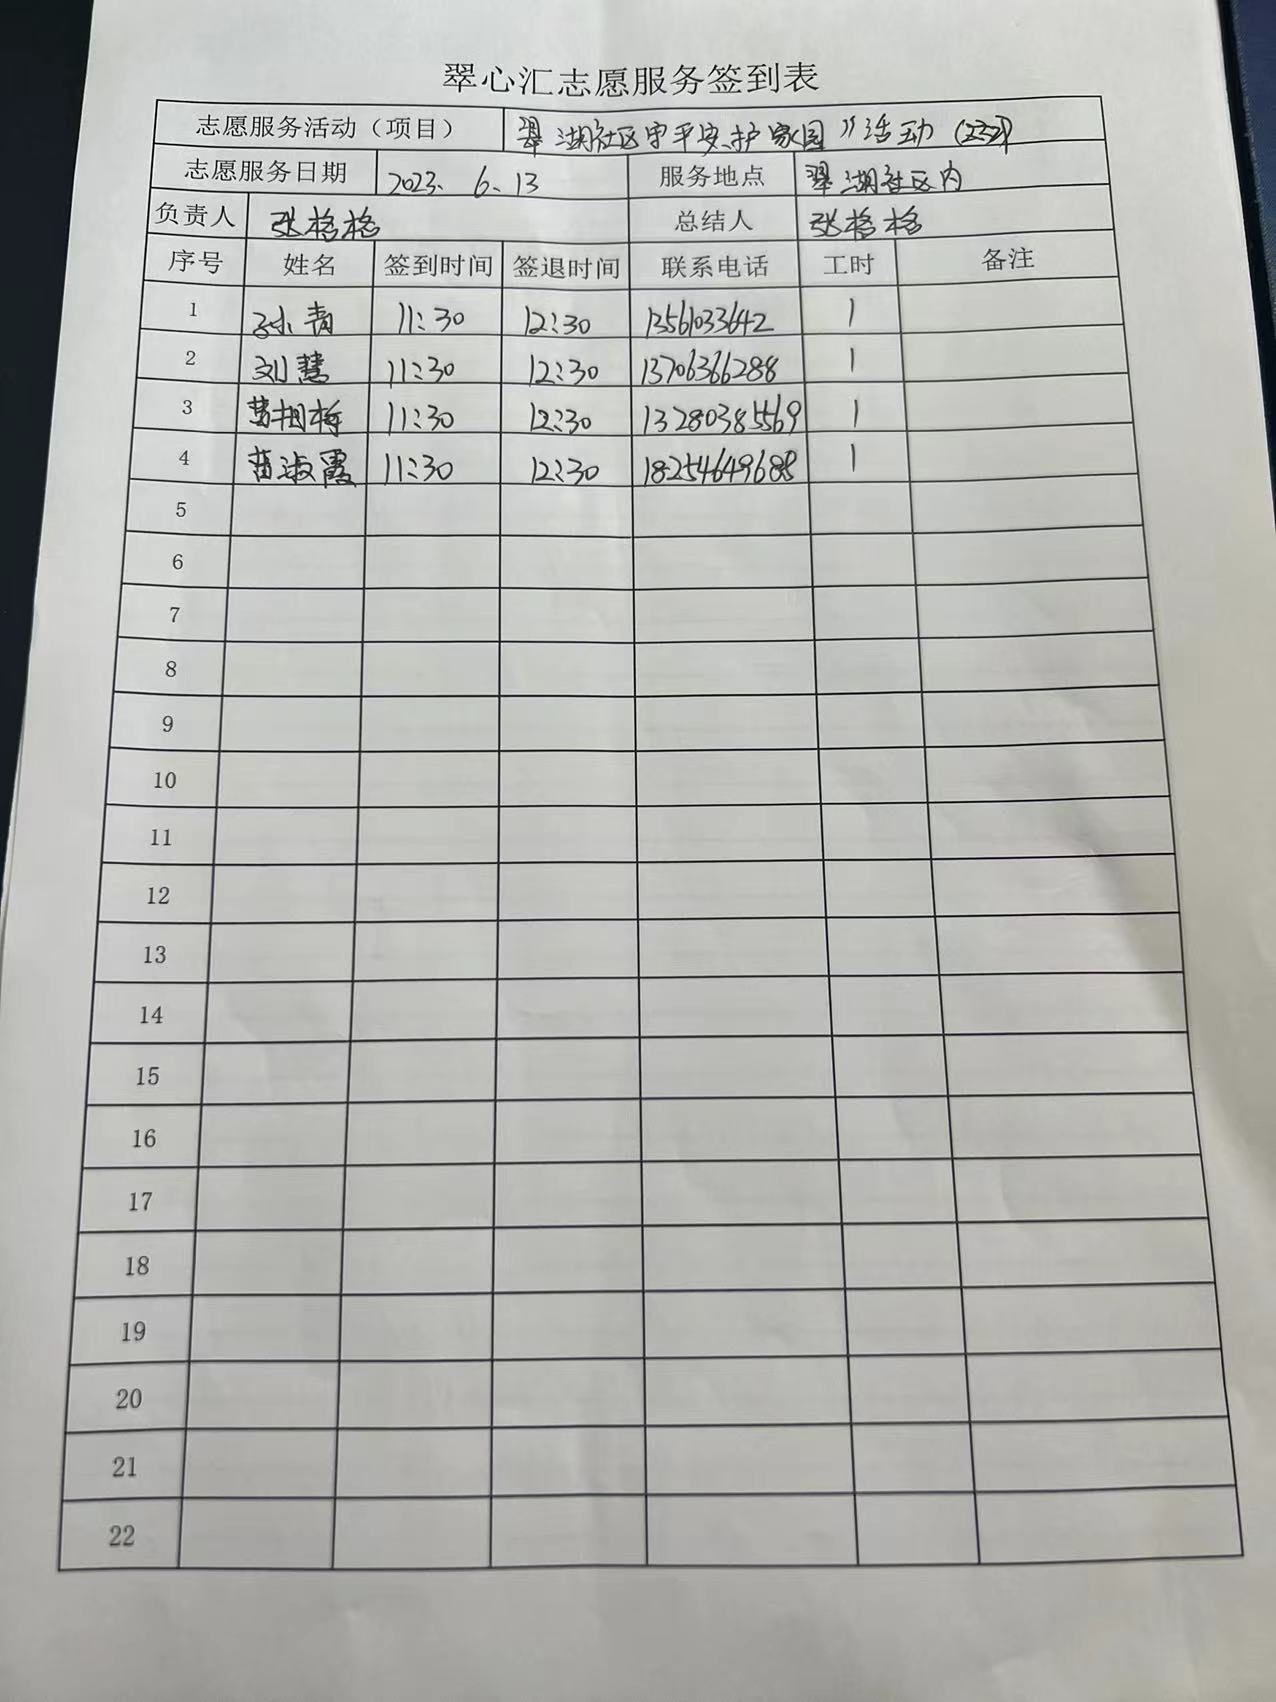 翠心汇志愿服务签到表
志愿服务活动（项目） 翠湖社区守平安、护家园”活动
志愿服务日期 2023、6、13 服务地点 翠湖社区内
负责人 张格格 总结人 张格格
序号 姓名 签到时间 签退时间 联系电话 工时 备注
1 孙青 11:30 12:30 13561033642 1
2 刘慧 11:30 12:30 13706366288 1
3 11:30 12:30 13280385569 1
4 苗淑霞 11:30 12:30 18254649688 1
5
6
7
8
9
10
11
12
13
14
15
16
17
18
19
20
21
22